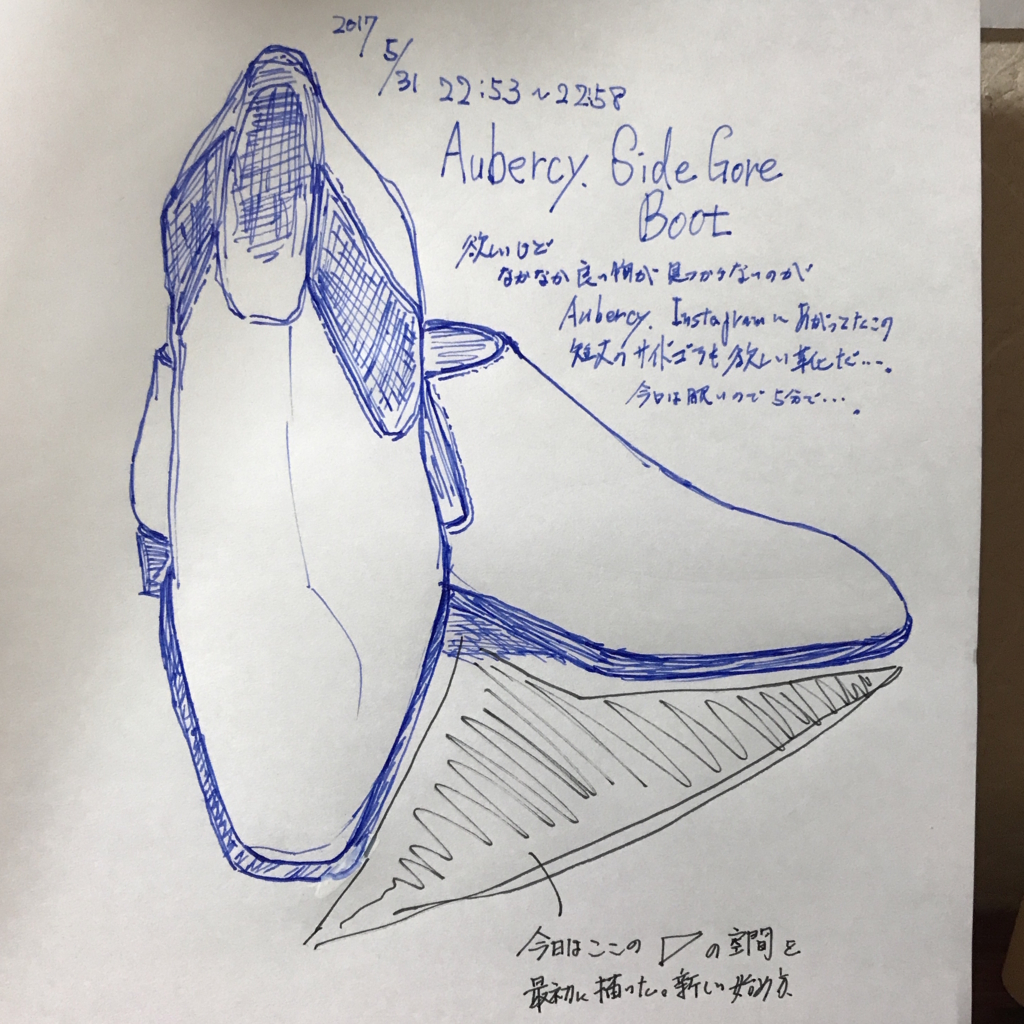 2017 5/31 22:53～22:58
Aubercy. Side Gore
Boot
欲しいけど
なかなか良い物が見つからないのが
Aubercy. Instagramにあがってたこの
短丈のサイドゴアも欲しい靴だ…。
今日は眠いので5分で…。
今日はここの▽の空間を
最初に描いた。新しい始め方